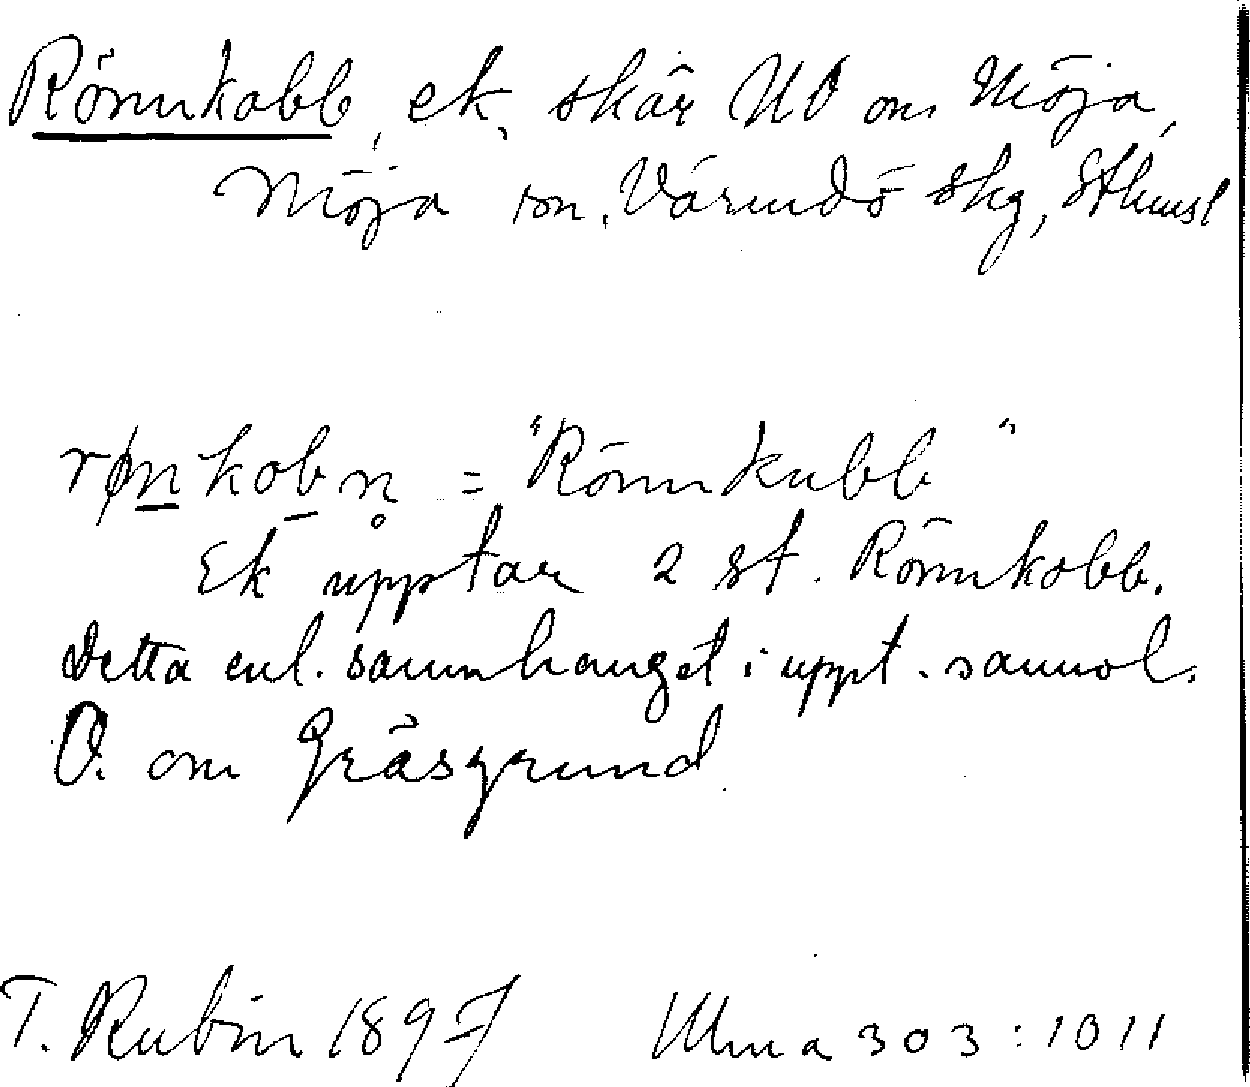 Rönnkobb, ek, skär NO om Möja,
Möja sn. Värmdö skg, Sthmsl
rønkobn̥ = "Rönnkubb"
Ek upptar 2 st. Rönnkobb.
Detta enl. sammhanget i uppt. sannol.
O. om Gräsgrund
T. Rubin 1897 Ulma 303:1011